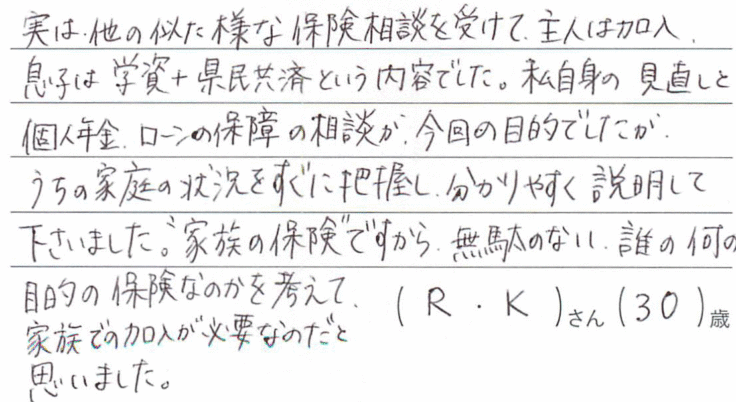 実は、他の似た様な保険相談を受けて、主人は加入、
息子は学資+県民共済という内容でした。私自身の見直しと
個人年金、ローンの保障の相談が、今回の目的でしたが、
うちの家庭の状況をすぐに把握し、分かりやすく説明して
下さいました。“家族の保険”ですから、無駄のない、誰の何の
目的の保険なのかを考えて、
家族での加入が必要なのだと
思いました。
(R・K)さん(30)歳